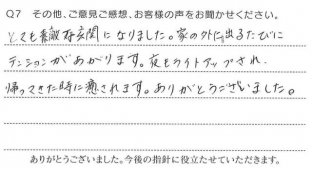 Q7 その他、ご意見ご感想、お客様の声をお聞かせください。
とても素敵な玄関になりました。家の外に出るたびに
テンションがあがります。夜もライトアップされ、
帰ってきた時に癒されます。ありがとうございました。
ありがとうございました。今後の指針に役立たせていただきます。